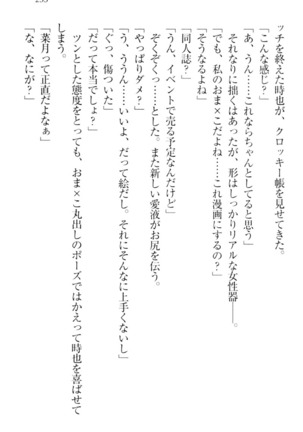 ッチを終えた時也が、クロッキー帳を見せてきた。
「こんな感じ？」
「あ、うん……これならちゃんとしてると思う」
それなりに拙くはあったが、形はしっかりリアルな女性器――。
「でも、私のおま×こだよね……これ漫画にするの？」
「そうなるよね」
「同人誌？」
「うん、イベントで売る予定なんだけど」
ぞくぞくっ……とした。また新しい愛液がお尻を伝う。
「やっぱりダメ？」
「う、ううん……いいよ、だって絵だし。それにそんなに上手くないし」
「ぐっ、傷ついた」
「だって本当でしょ？」
ツンとした態度をとっても、おま×こ丸出しのポーズではかえって時也を喜ばせて
しまう。
「菜月って正直だよなぁ」
「な、なにが？」